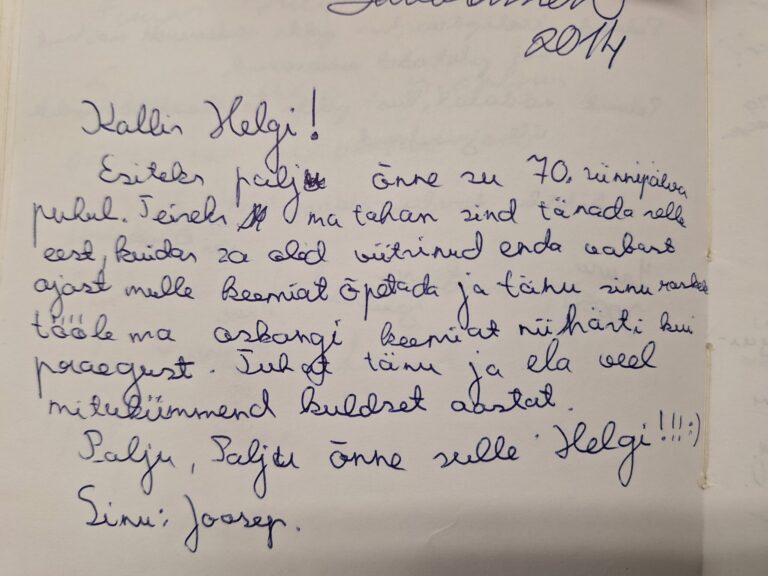 2014
Kallis Helgi!
Esiteks palju õnne su 70. sünnipäeva
puhul. Teiseks ma tahan sind tänada selle
eest, kuidas sa oled viitsinud enda vabast
ajast mulle keemiat õpetada ja tänu sinu raskele
tööle ma oskangi keemiat nii hästi kui
praegust. Tuhat tänu ja ela veel
mitukümmend kuldset aastat.
Palju, Palju õnne sulle Helgi!!!:)
Sinu: Joosep.